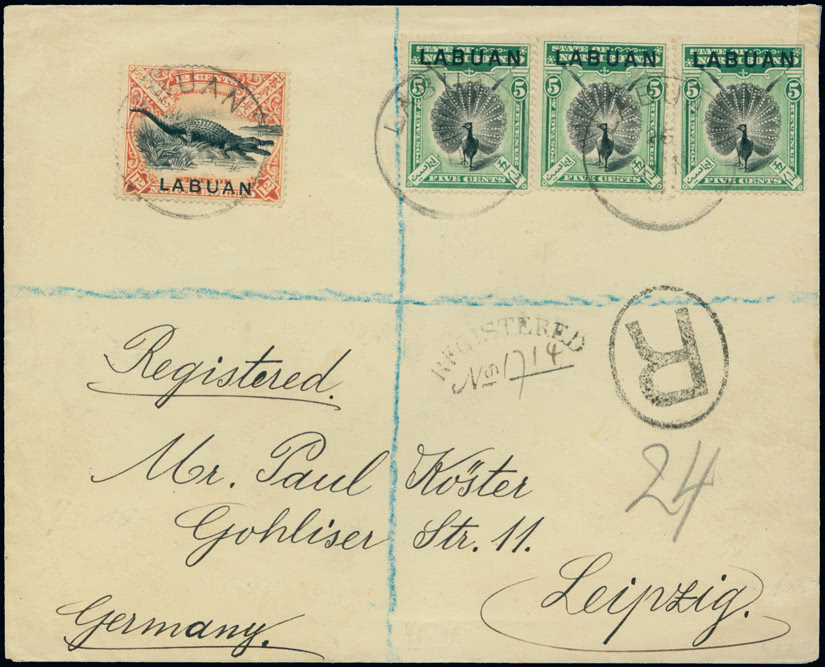 12 CENTS 12
LABUAN
LABUAN
LABUAN LABUAN LABUAN
5 5 5 5 5 5
FIVE CENTS FIVE CENTS FIVE CENTS
LABUAN
REGISTERED
No 1714
R
Registered.
Mr. Paul Köster
Gohliser Str. 11.
24
Leipzig.
Germany.